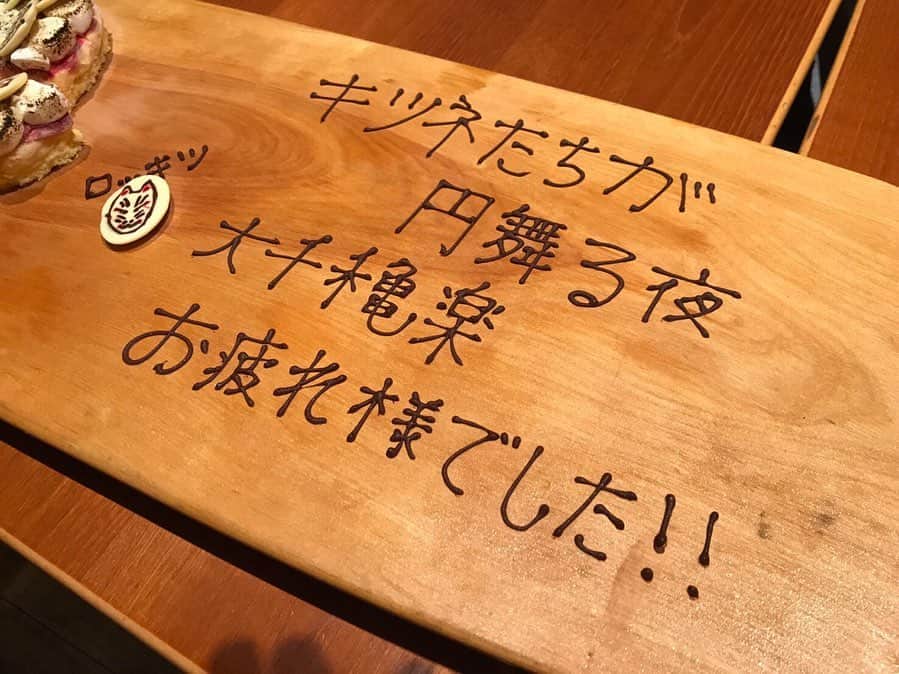 キツネたちが
円舞る夜
大千穐楽
お疲れ様でした!!
ロッキツ